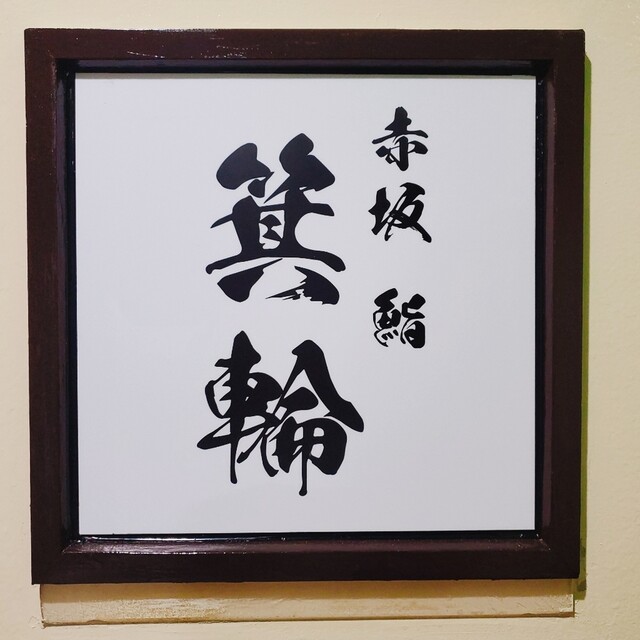 赤坂 鮨
箕輪